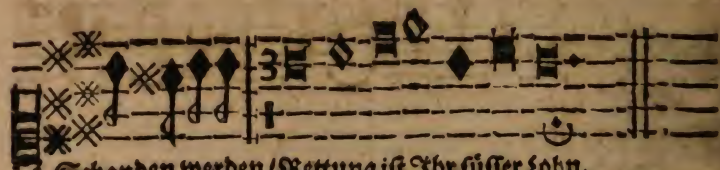 3
1
Schanden werden / Rettung ist Ihr süsser Lohn.